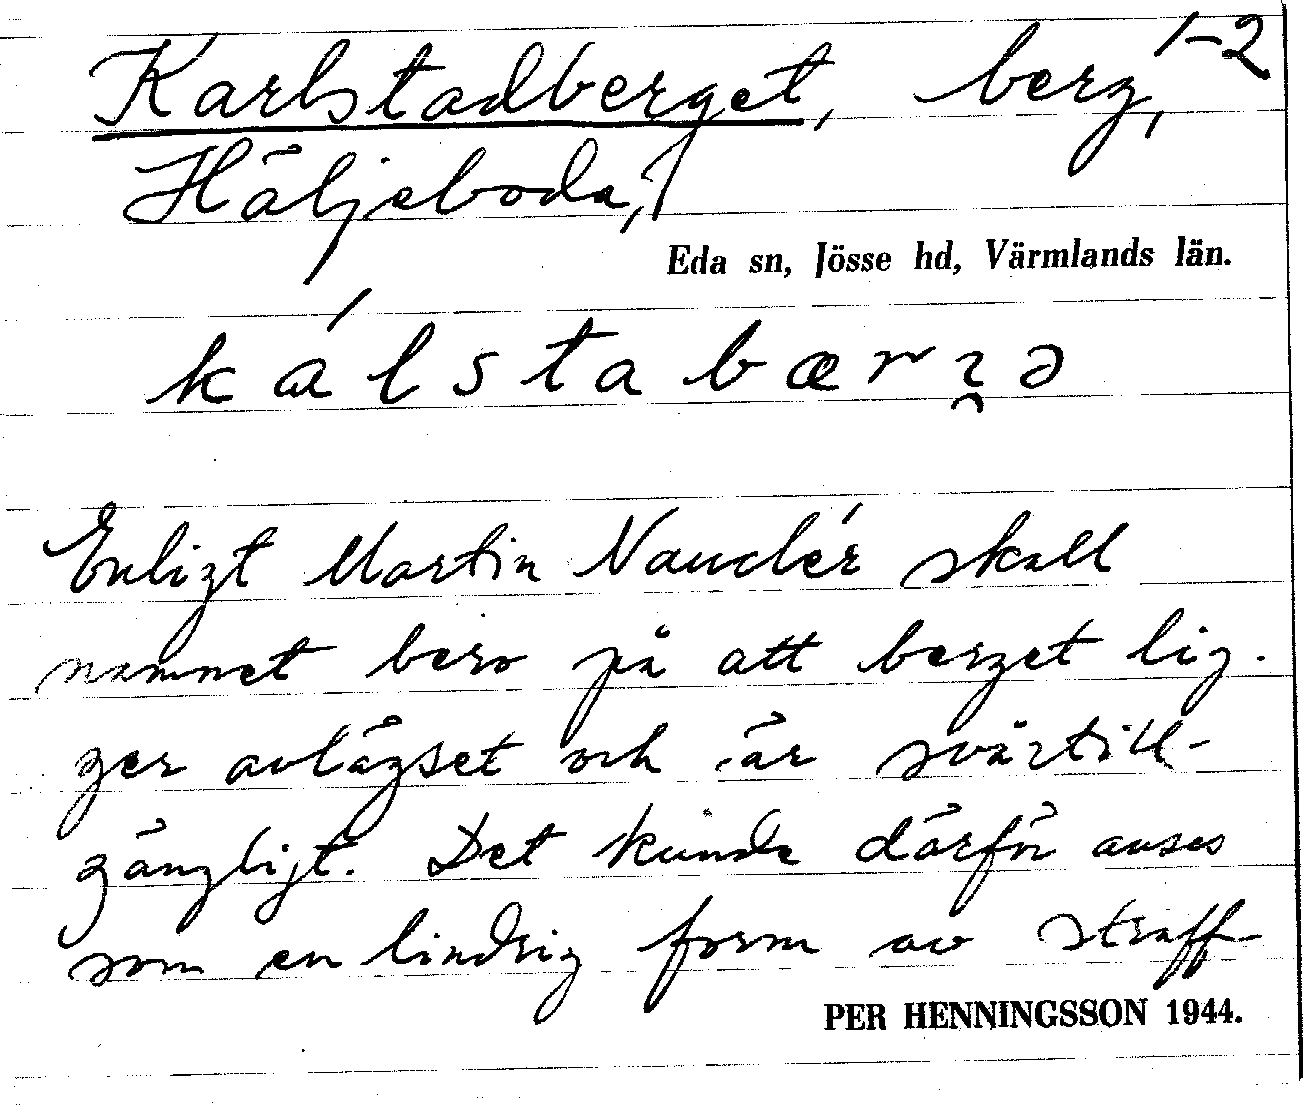 Karlstadberget, berg, 1-2
Häljeboda,
Eda sn, Jösse hd, Värmlands län.
kálstabærʒ̯ə
Enligt Martin Nauclér skall
namnet bero på att berget lig-
ger avlägset och är svårtill-
gängligt. Det kunde därför anses
som en lindrig form av straff
PER HENNINGSSON 1944.